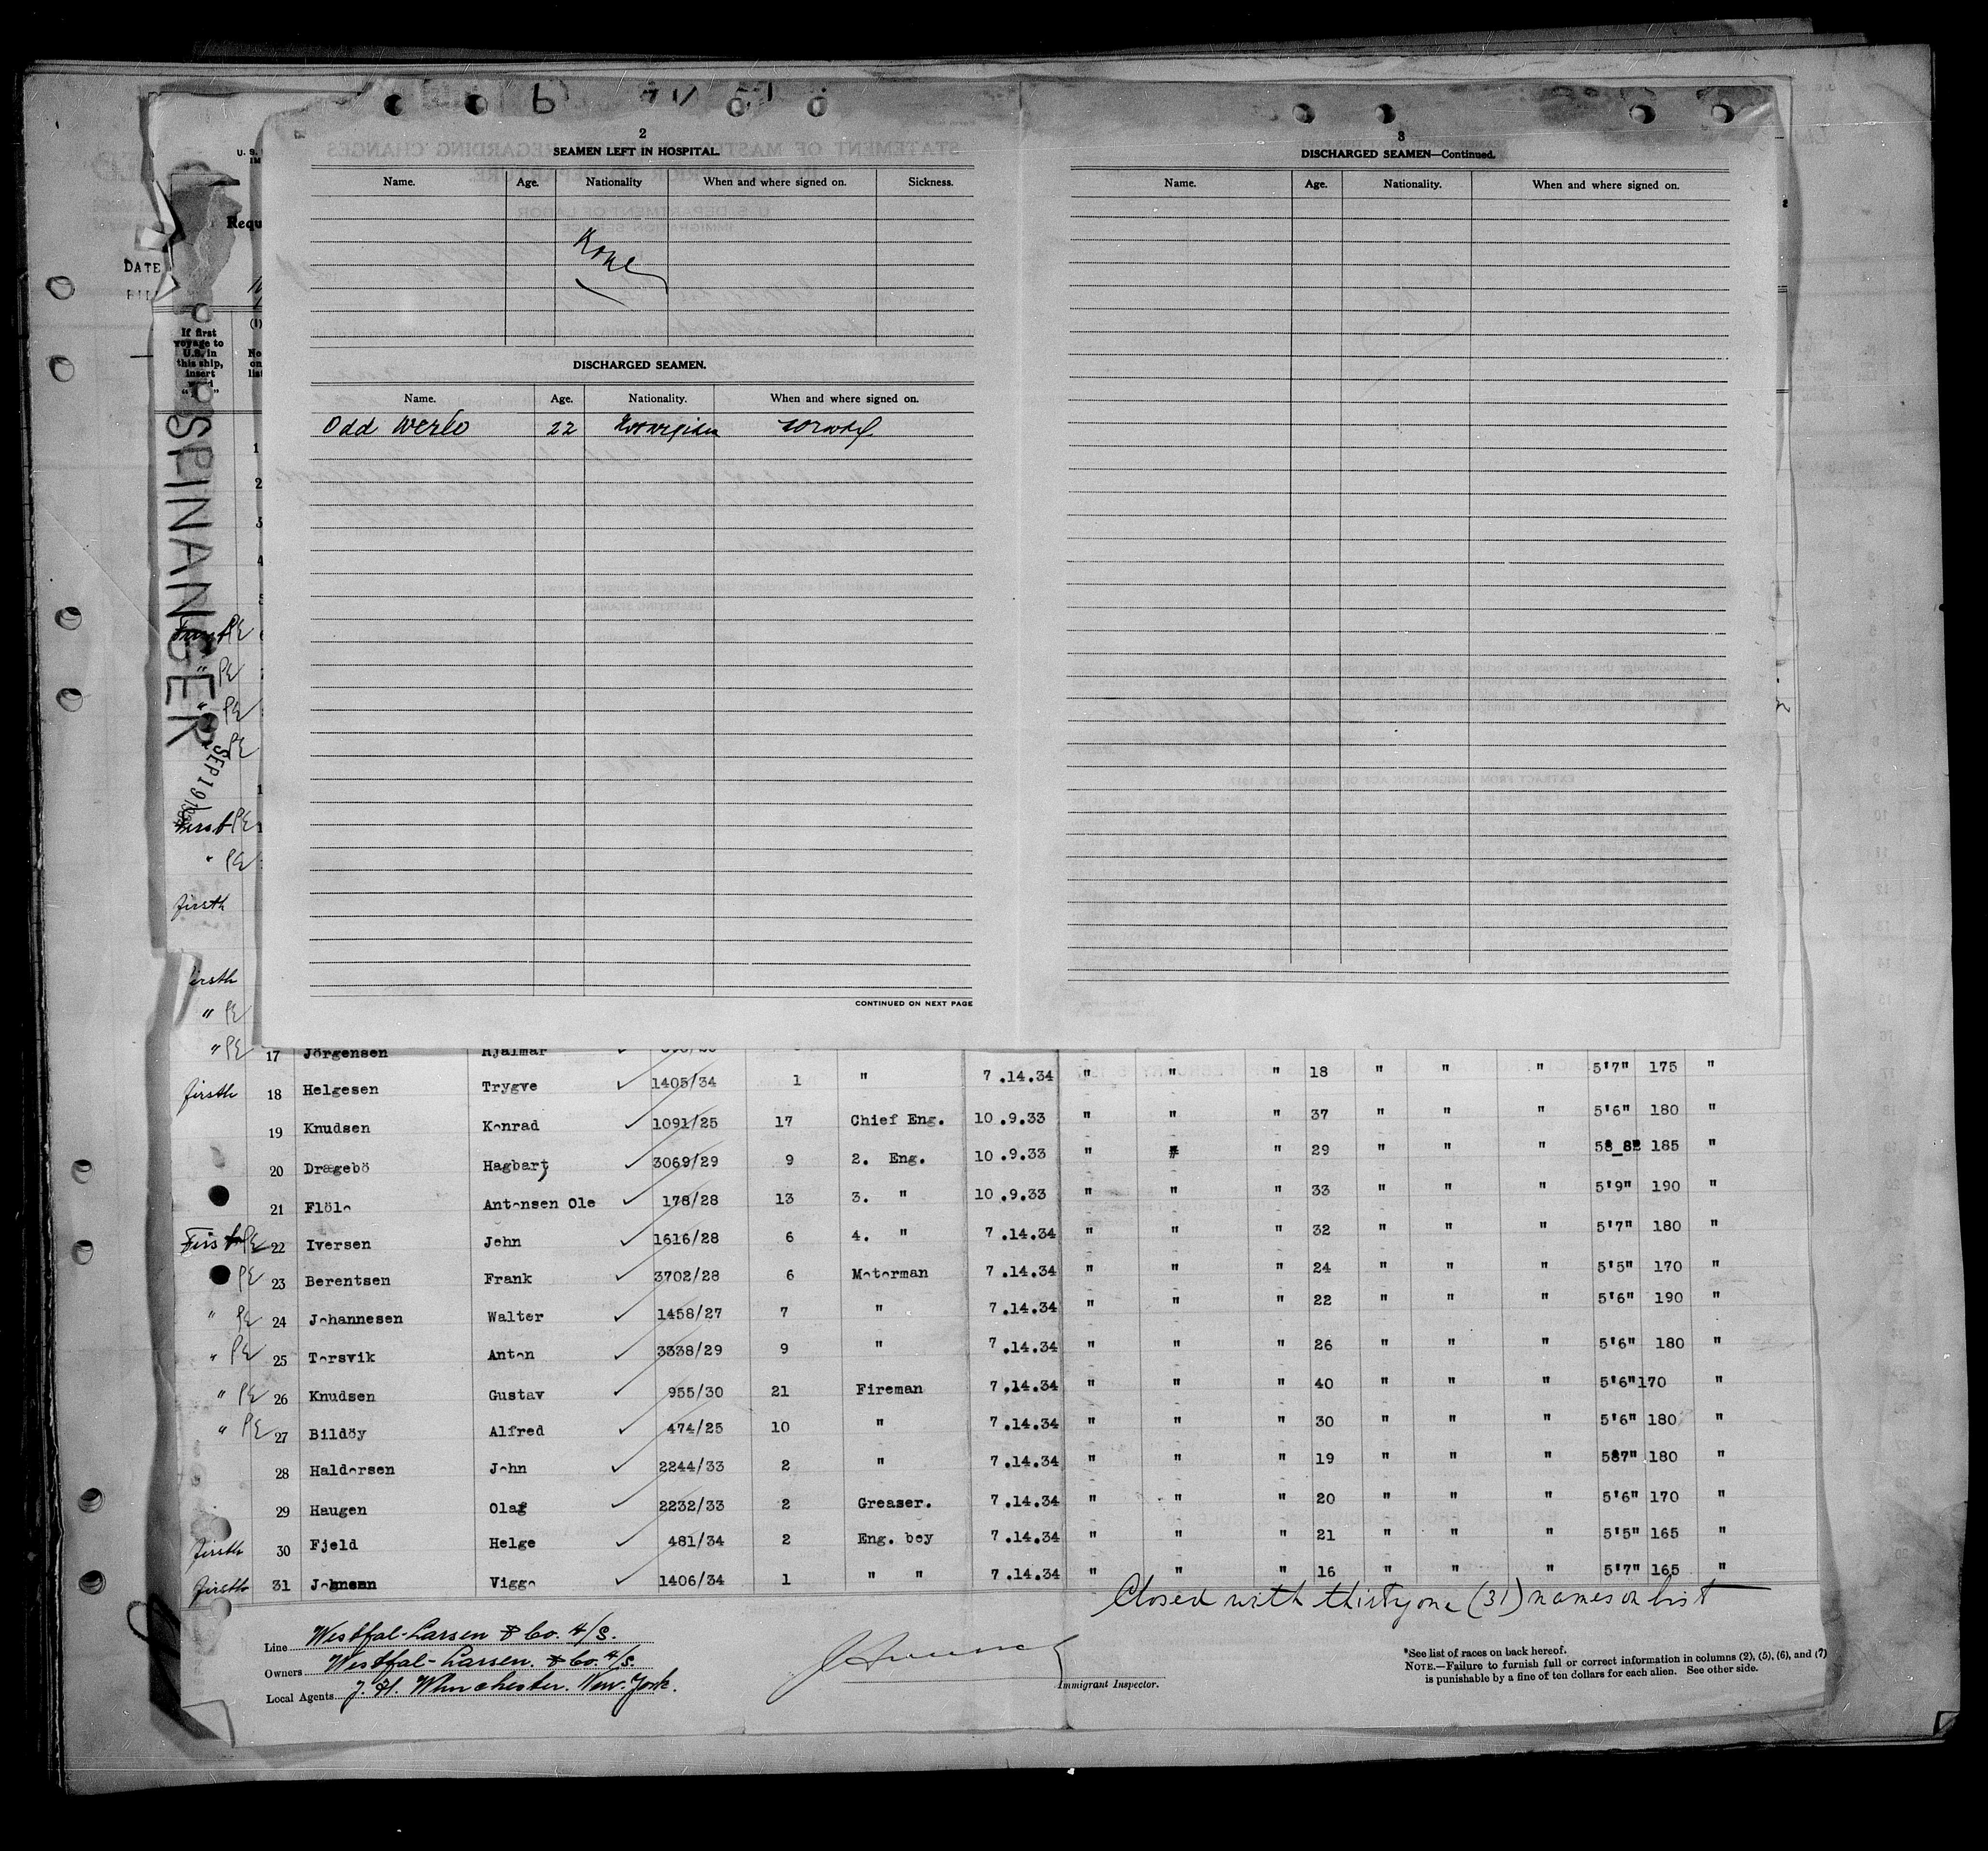 2
SEAMEN LEFT IN HOSPITAL.
Name. Age. Nationality When and where signed on. Sickness.
None
DISCHARGED SEAMEN.
Name. Age. Nationality. When and where signed on.
Odd Werlo 22 Norwegian
CONTINUED ON NEXT PAGE
3
DISCHARGED SEAMEN—Continued.
Name. Age. Nationality. When and where signed on.
U. S.
Requ
DATE
If first
voyage to
U.S. in
this ship,
insert
(1)
No
on
list
SPINANGER
SEP 19 1934
1
2
3
4
5
First PE
" PE
" PE
PE
First PE
" PE
firsth
firsth
" PE
" PE 17 Jörgensen Hjalmar
firsth 18 Helgesen Trygve ✓ 1405/34 1 " 7.14.34 " " " 18 " " " 5'7" 175 "
19 Knudsen Konrad ✓ 1091/25 17 Chief Eng. 10.9.33 " " " 37 " " " 5'6" 180 "
20 Drægebö Hagbart ✓ 3069/29 9 2. Eng. 10.9.33 " " " 29 " " " 58_8 185 "
21 Flölo Antonsen Ole ✓ 178/28 13 3. " 10.9.33 " " " 33 " " " 5'9" 190 "
First PE 22 Iversen John ✓ 1616/28 6 4. " 7.14.34 " " " 32 " " " 5'7" 180 "
PE 23 Berentsen Frank ✓ 3702/28 6 Motorman 7.14.34 " " " 24 " " " 5'5" 170 "
" PE 24 Johannesen Walter ✓ 1458/27 7 " 7.14.34 " " " 22 " " " 5'6" 190 "
" PE 25 Torsvik Anton ✓ 3338/29 9 " 7.14.34 " " " 26 " " " 5'6" 180 "
" PE 26 Knudsen Gustav ✓ 955/30 21 Fireman 7.14.34 " " " 40 " " " 5'6" 170 "
" PE 27 Bildöy Alfred ✓ 474/25 10 " 7.14.34 " " " 30 " " " 5'6" 180 "
28 Haldorsen John ✓ 2244/33 2 " 7.14.34 " " " 19 " " " 587" 180 "
29 Haugen Olaf ✓ 2232/33 2 Greaser. 7.14.34 " " " 20 " " " 5'6" 170 "
firsth 30 Fjeld Helge ✓ 481/34 2 Eng. boy 7.14.34 " " " 21 " " " 5'5" 165 "
firsth 31 Johnsen Viggo ✓ 1406/34 1 " " 7.14.34 " " " 16 " " " 5'7" 165 "
Closed with thirtyone (31) names on list
Line Westfal-Larsen & Co. A/S.
Owners Westfal-Larsen. & Co. A/S.
Local Agents J. H. Winchester. New. York.
Immigrant Inspector.
*See list of races on back hereof.
NOTE.—Failure to furnish full or correct information in columns (2), (5), (6), and (7)
is punishable by a fine of ten dollars for each alien. See other side.